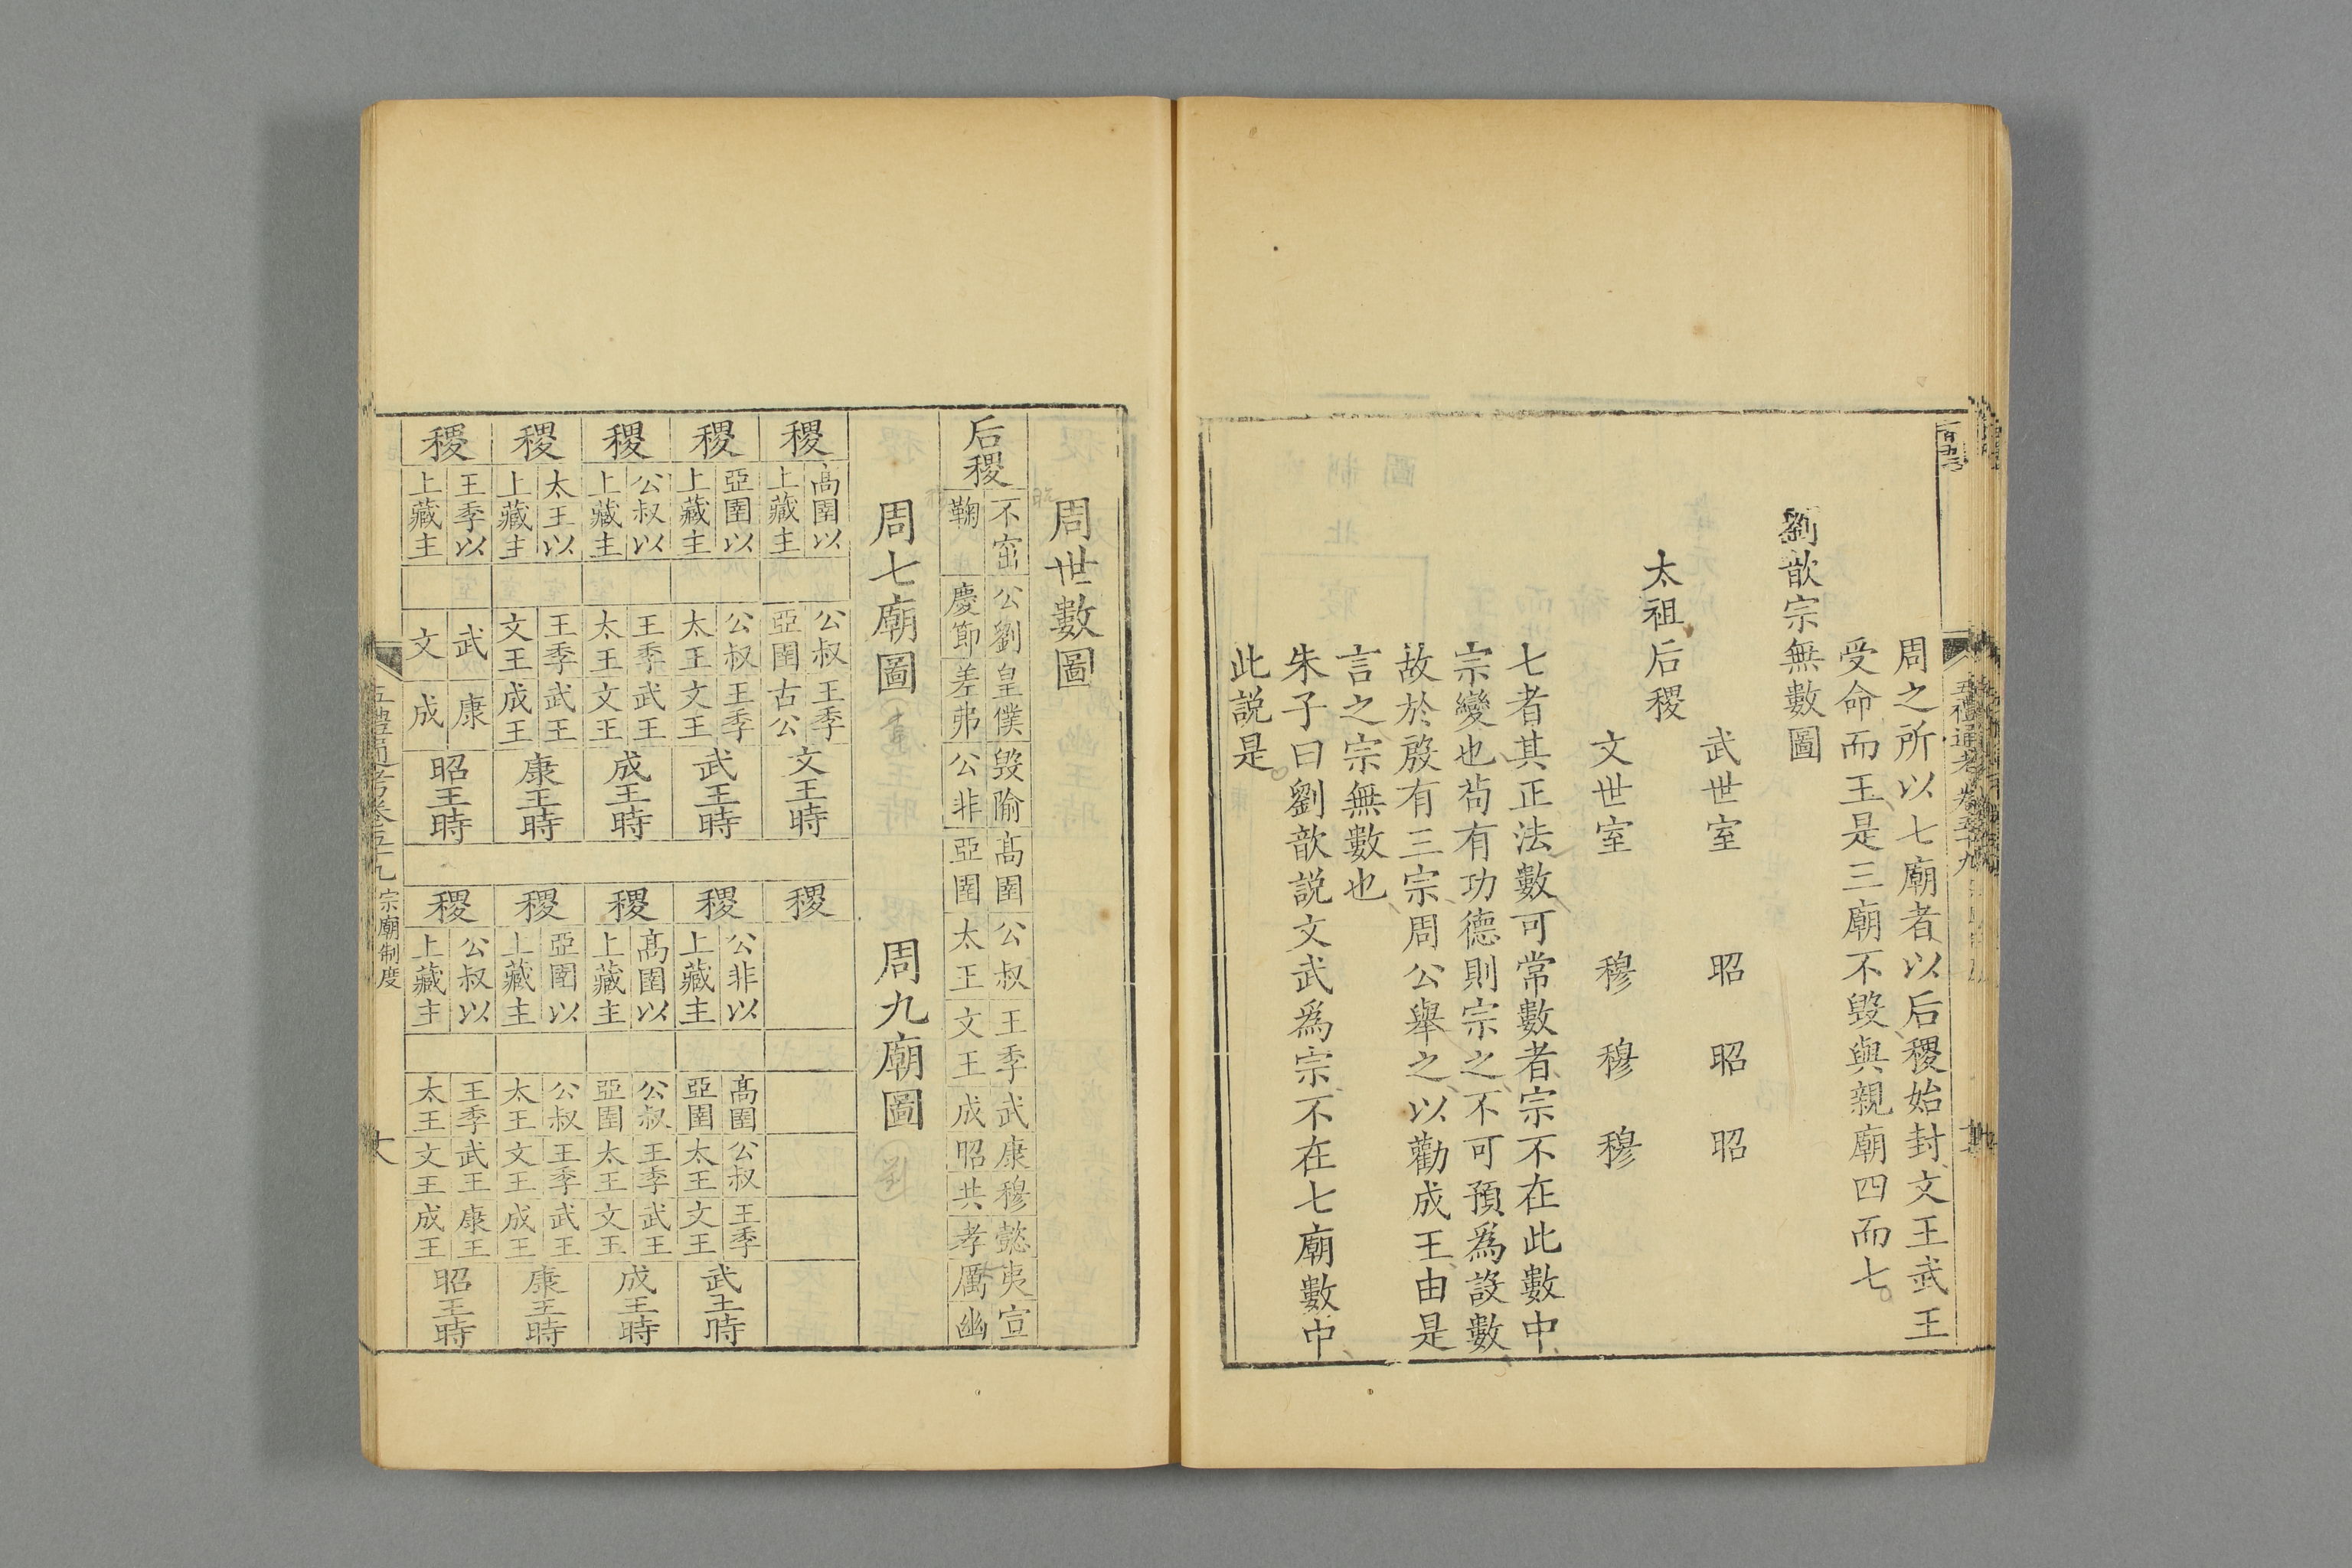 周之所以七廟者以后稷始封文王武王
受命而王是三廟不毀與親廟四而七
劉歆宗無數圖
武世室 昭 昭 昭
太祖后稷
文世室 穆 穆 穆
七者其正法數可常數者宗不在此數中
宗變也茍有功德則宗之不可預為設數
故於殷有三宗周公舉之以勸成王由是
言之宗無數也
朱子曰劉歆說文武為宗不在七廟數中
此說是
周世數圖
后稷
不窋 公劉 皇僕 毀隃 高圉 公叔 王季 武 康 穆 懿 夷 宣
鞠 慶節 差弗 公非 亞圉 太王 文王 成 昭 共 孝 厲 幽
周七廟圖
周九廟圖
稷
高圉以
上藏主
公叔 王季
亞圉 古公
文王時
稷
亞圉以
上藏主
公叔 王季
太王 文王
武王時
稷
公叔以
上藏主
王季 武王
太王 文王
成王時
稷
太王以
上藏主
王季 武王
文王 成王
康王時
稷
王季以
上藏主
武 康
文 成
昭王時
稷
稷
公非以
上藏主
高圉 公叔 王季
亞圉 太王 文王
武王時
稷
高圉以
上藏主
公叔 王季 武王
亞圉 太王 文王
成王時
稷
亞圉以
上藏主
公叔 王季 武王
太王 文王 成王
康王時
稷
公叔以
上藏主
王季 武王 康王
太王 文王 成王
昭王時
五禮通考卷五十九 宗廟制度